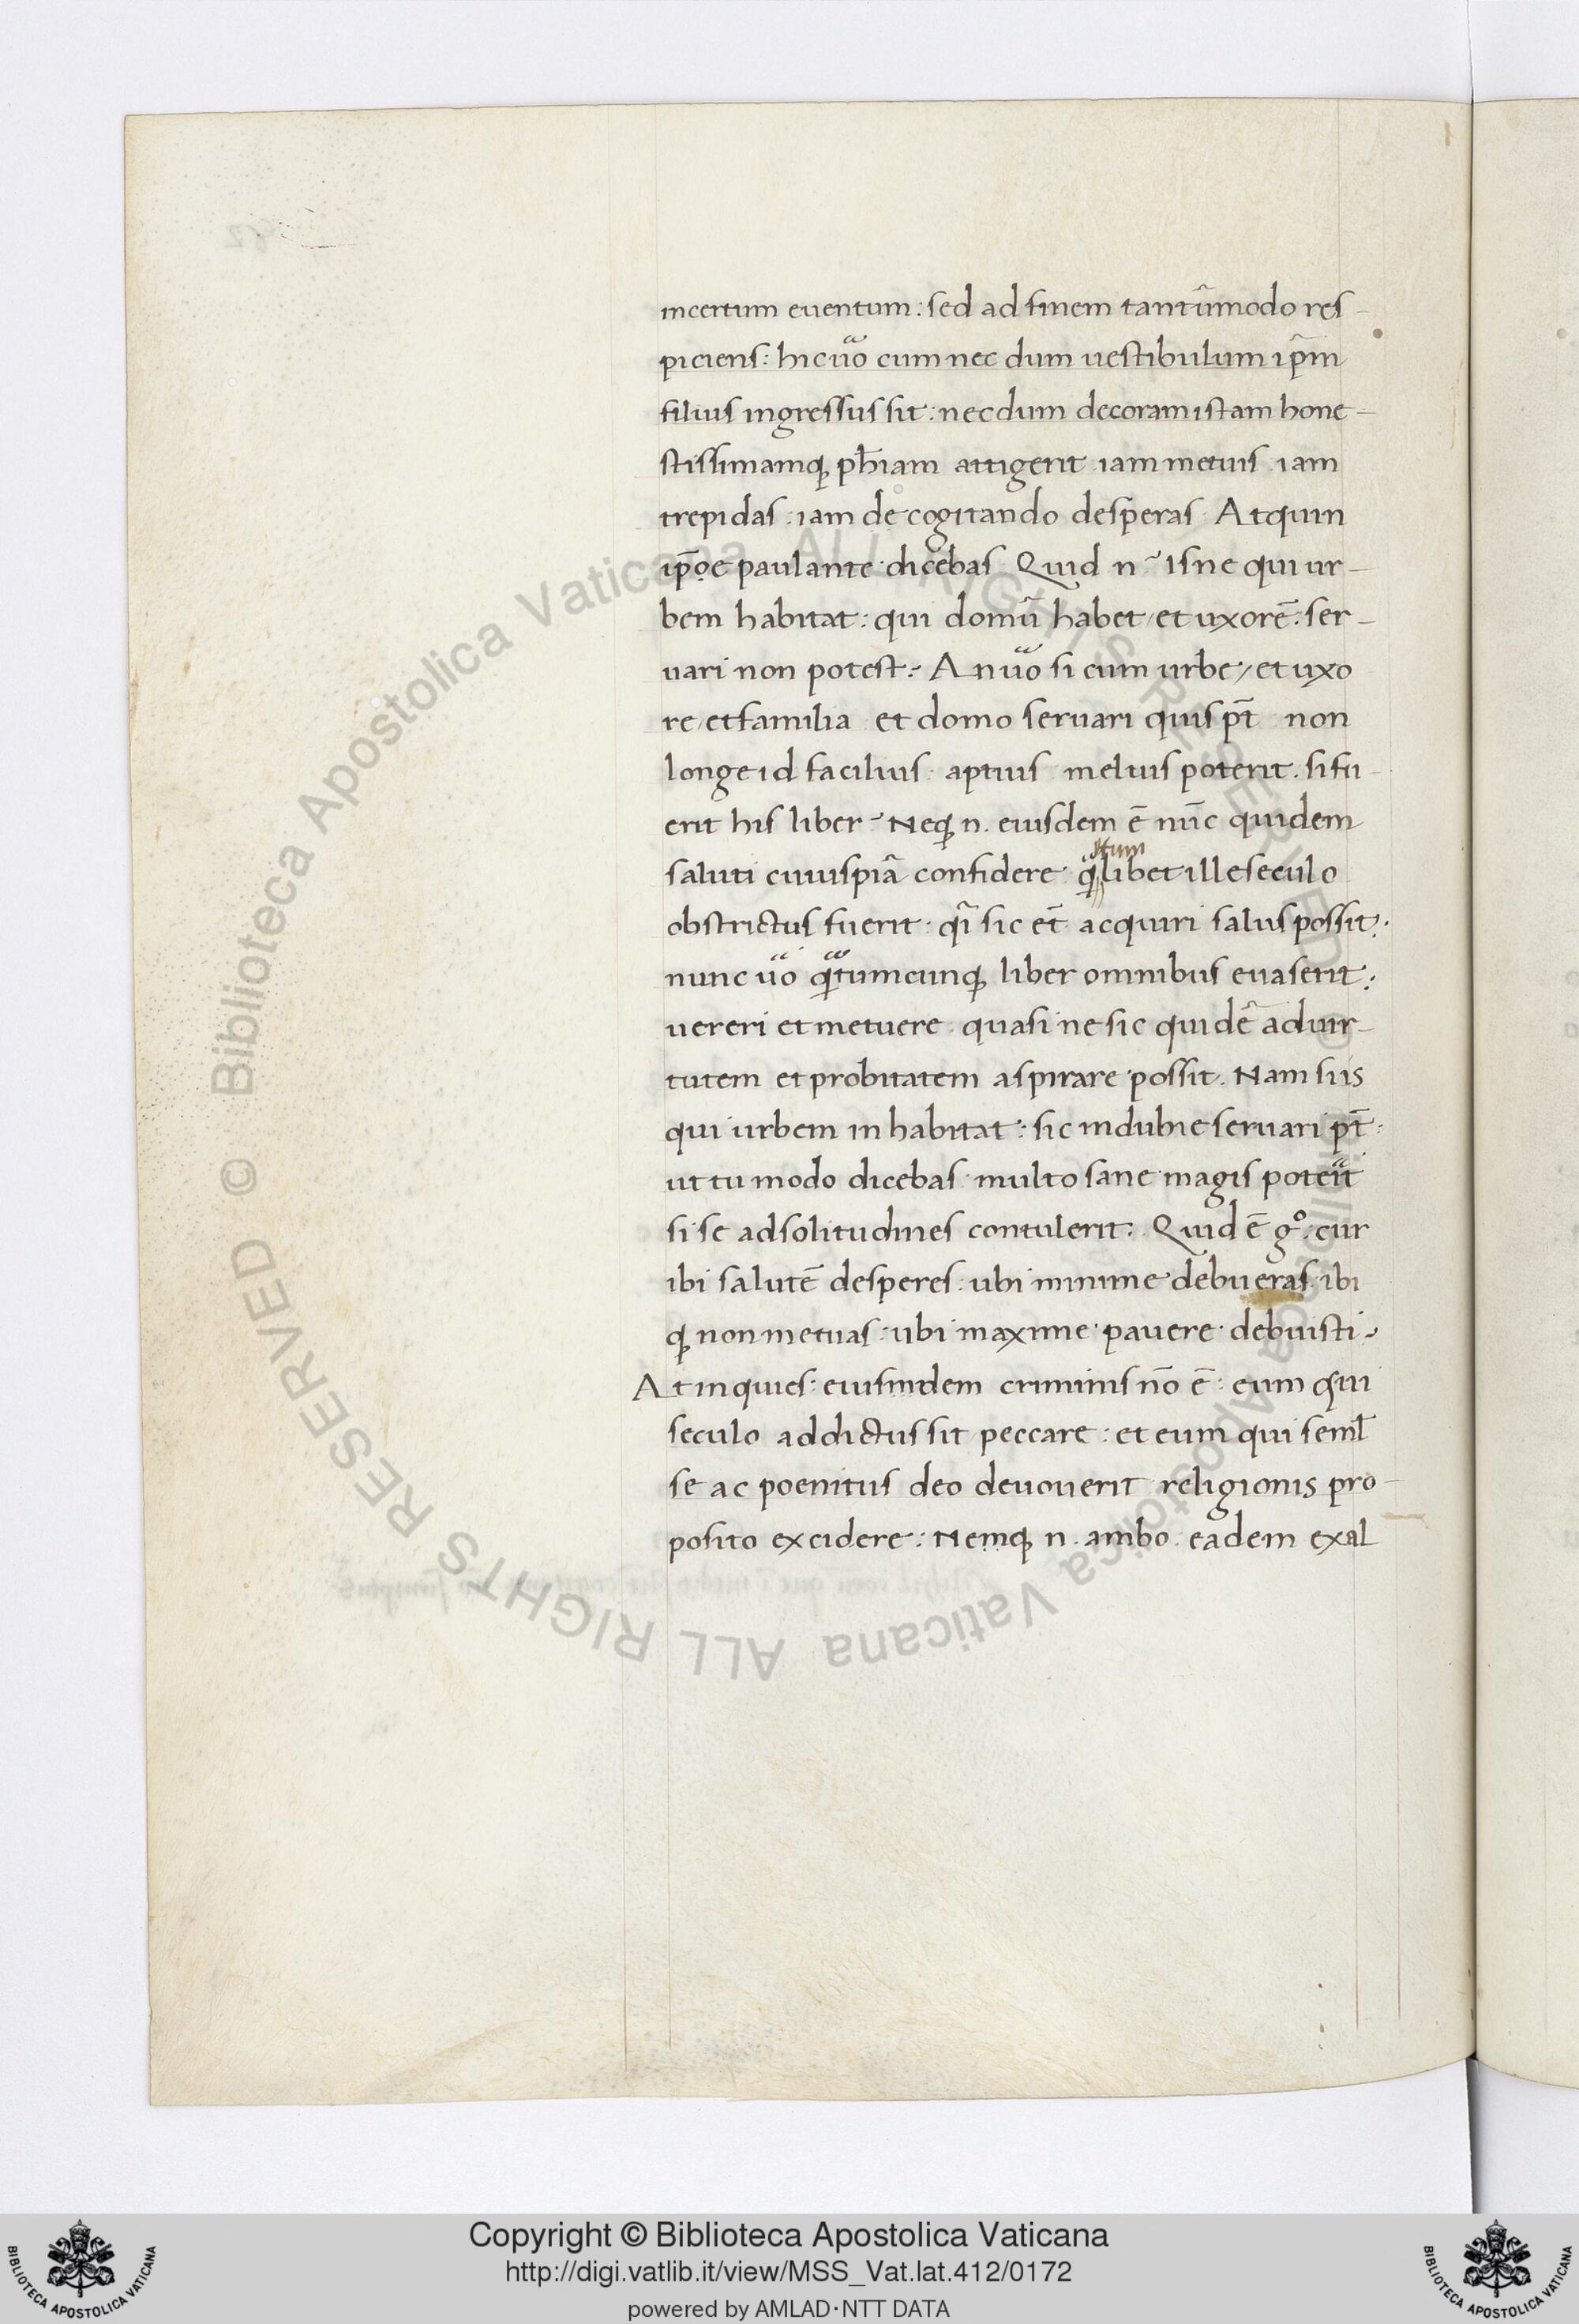 incertum euentum: sed ad finem tantu᷑modo res-
piciens: hic uͣo cum nec dum uestibulum ip̄m
filius ingressus sit: necdum decoram istam hone-
stissimamq; ph̄iam attigerit iam metuis iam
trepidas: iam de cogitando desperas Atquin
ip̄oe paulante dicebas Quid n̄ isne qui ur-
bem habitat: qui domū habet et uxorē: ser-
uari non potest: An uͣo si cum urbe, et uxo
re, et familia et domo seruari quis pt̄ non
longe id facilius aptius melius poterit. si fu-
erit his liber Neq; n. eiusdem ē nūc quidem
saluti cuiuspiā confidere q̄libet ille seculo
obstrictus fuerit: qī sic et̄ acquiri salus possit:
nunc uͣo qͣtumcunq; liber omnibus euaserit:
uereri et metuere quasi ne sic quidē ad uir-
tutem et probitatem aspirare possit. Nam si is
qui urbem inhabitat: sic indubie seruari pt̄:
ut tu modo dicebas multo sane magis poteͣit
si se ad solitudines contulerit: Quid ē gº: cur
ibi salutē desperes: ubi minime debueras ibi
q; non metuas: ubi maxime pauere debuisti
At inquies: eiusmdem criminis nō ē: eum qui
seculo addictus sit peccare: et eum qui seml̄
se ac poenitus deo deuouerit religionis pro-
posito excidere: Nemq; n. ambo eadem exal
© Biblioteca Apostolica Vaticana ALL RIGHTS RESERVED
© Biblioteca Apostolica Vaticana ALL RIGHTS RESERVED
BIBLIOTECA APOSTOLICA VATICANA
Copyright © Biblioteca Apostolica Vaticana
http://digi.vatlib.it/view/MSS_Vat.lat.412/0172
powered by AMLAD·NTT DATA
BIBLIOTECA APOSTOLICA VATICANA